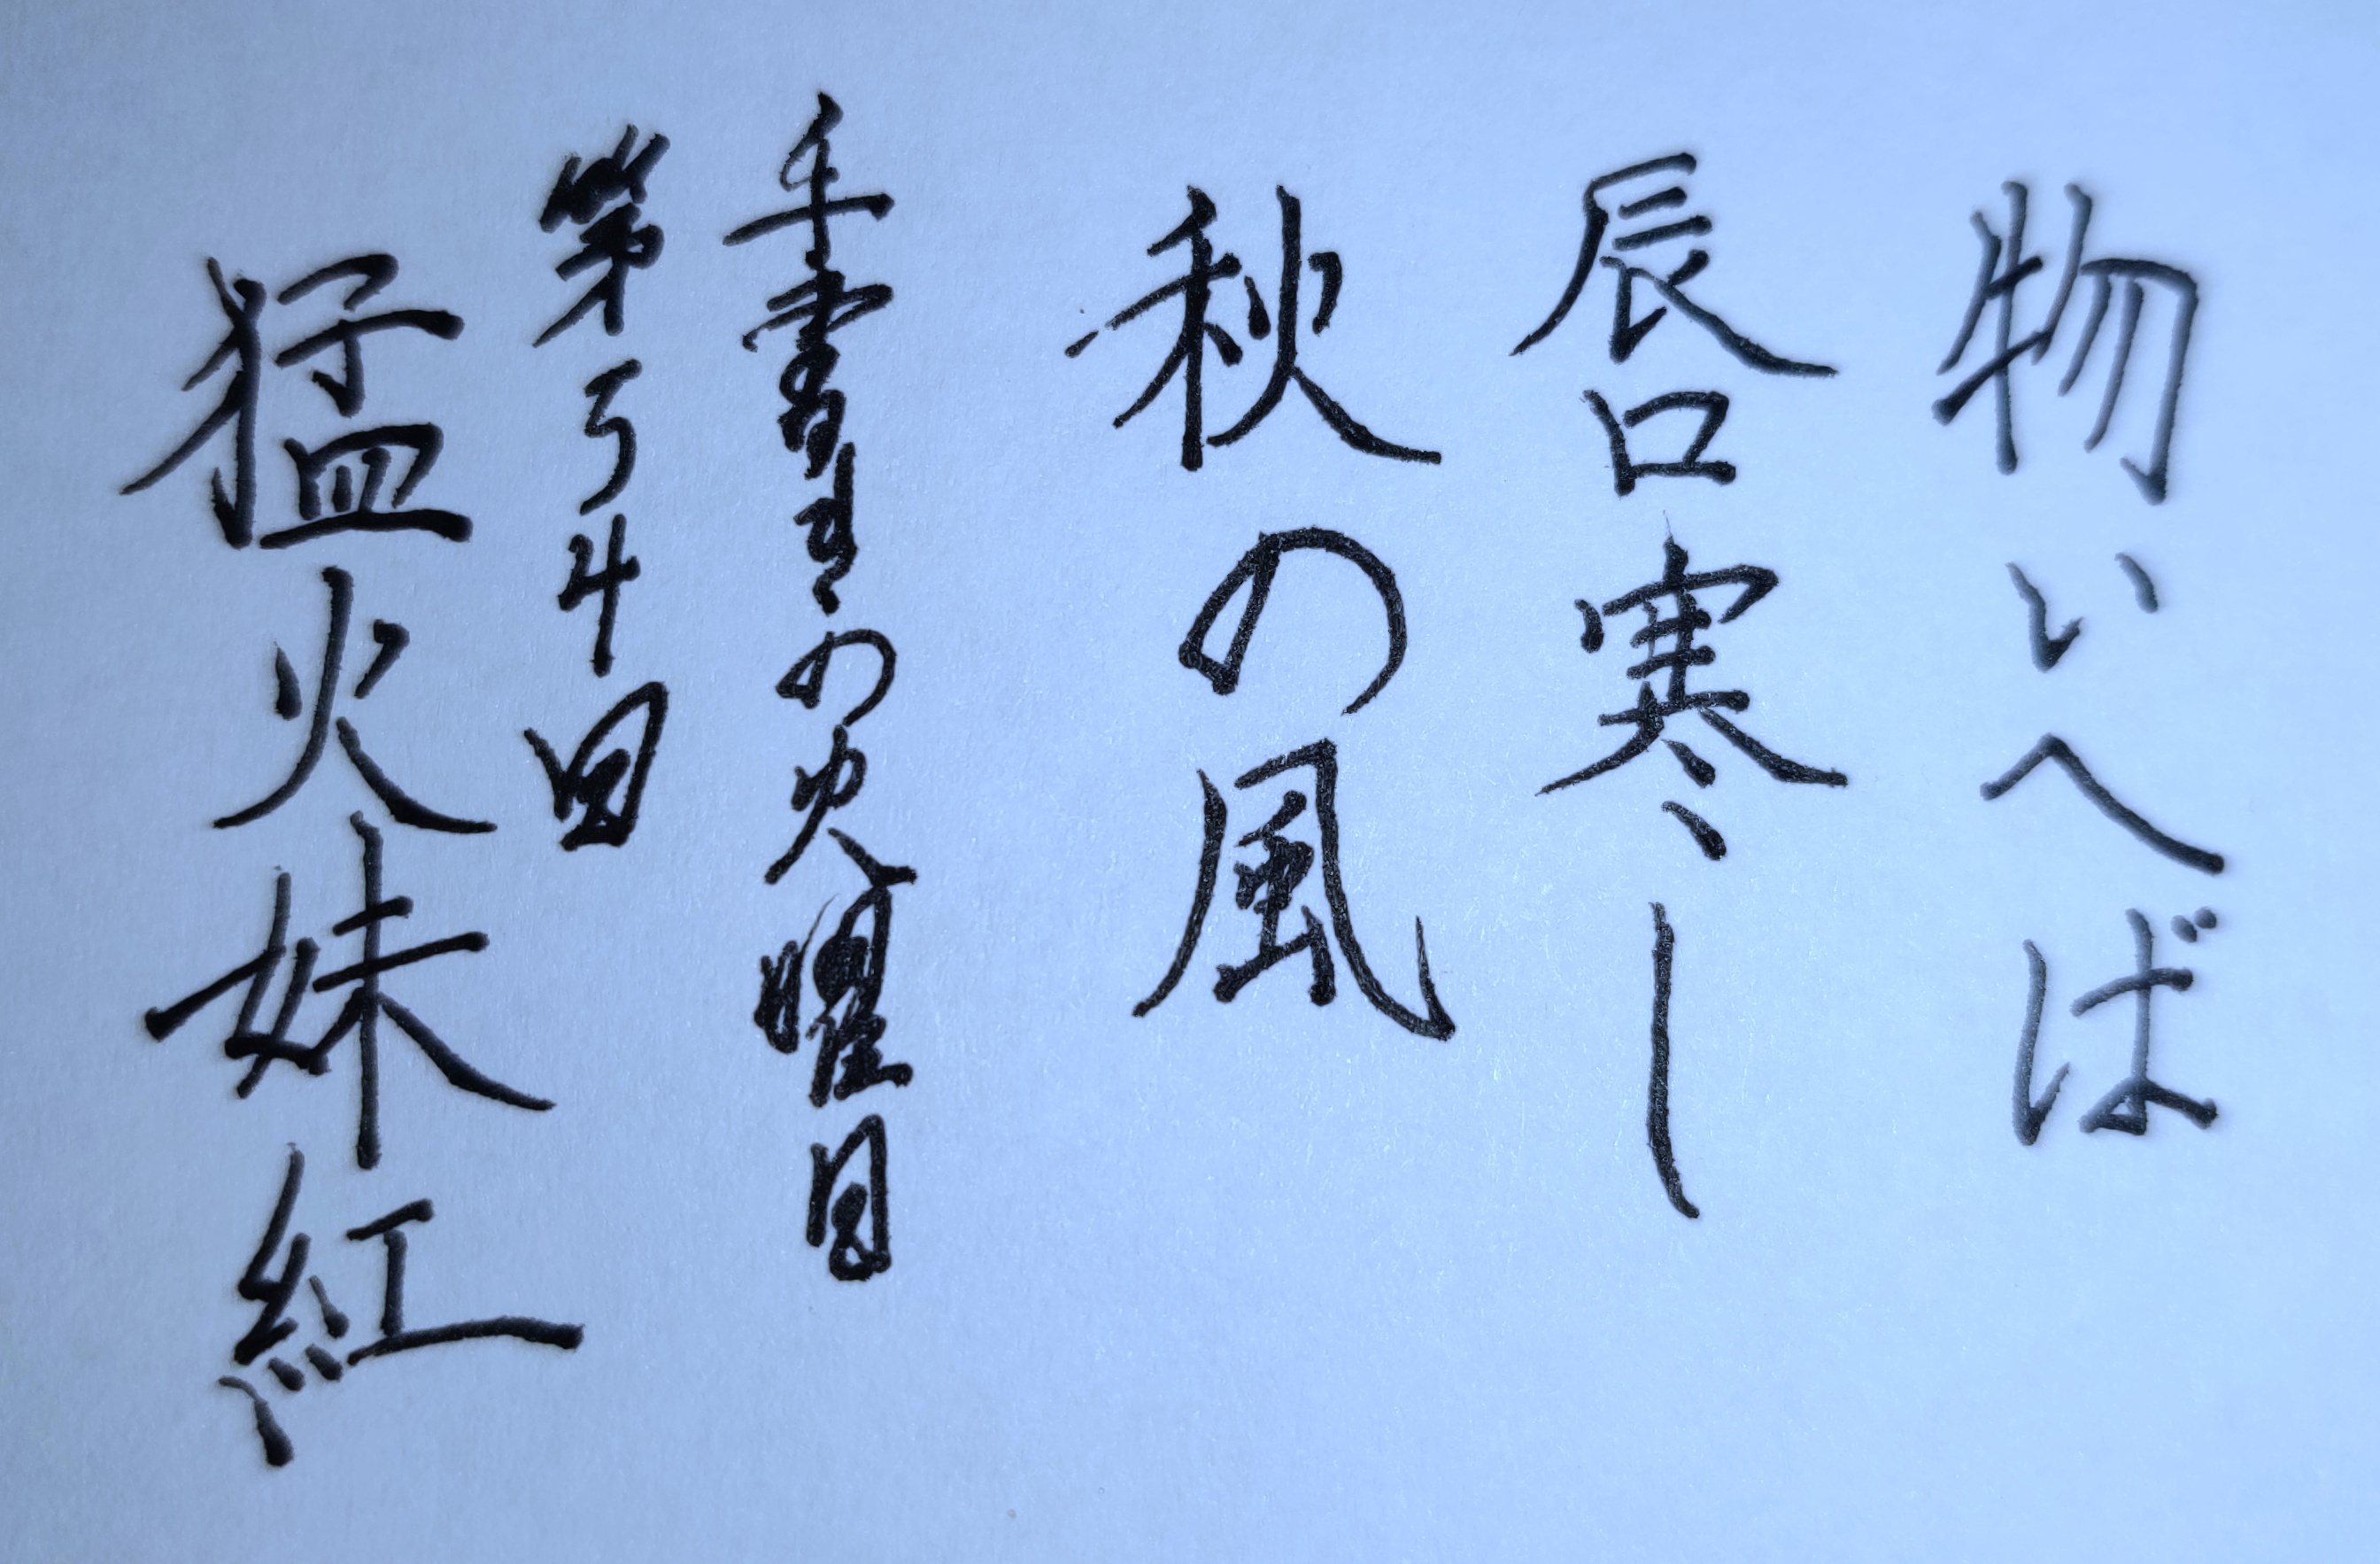 物いへば
唇寒し
秋の風
手書きの火曜日
第54回
猛火妹紅